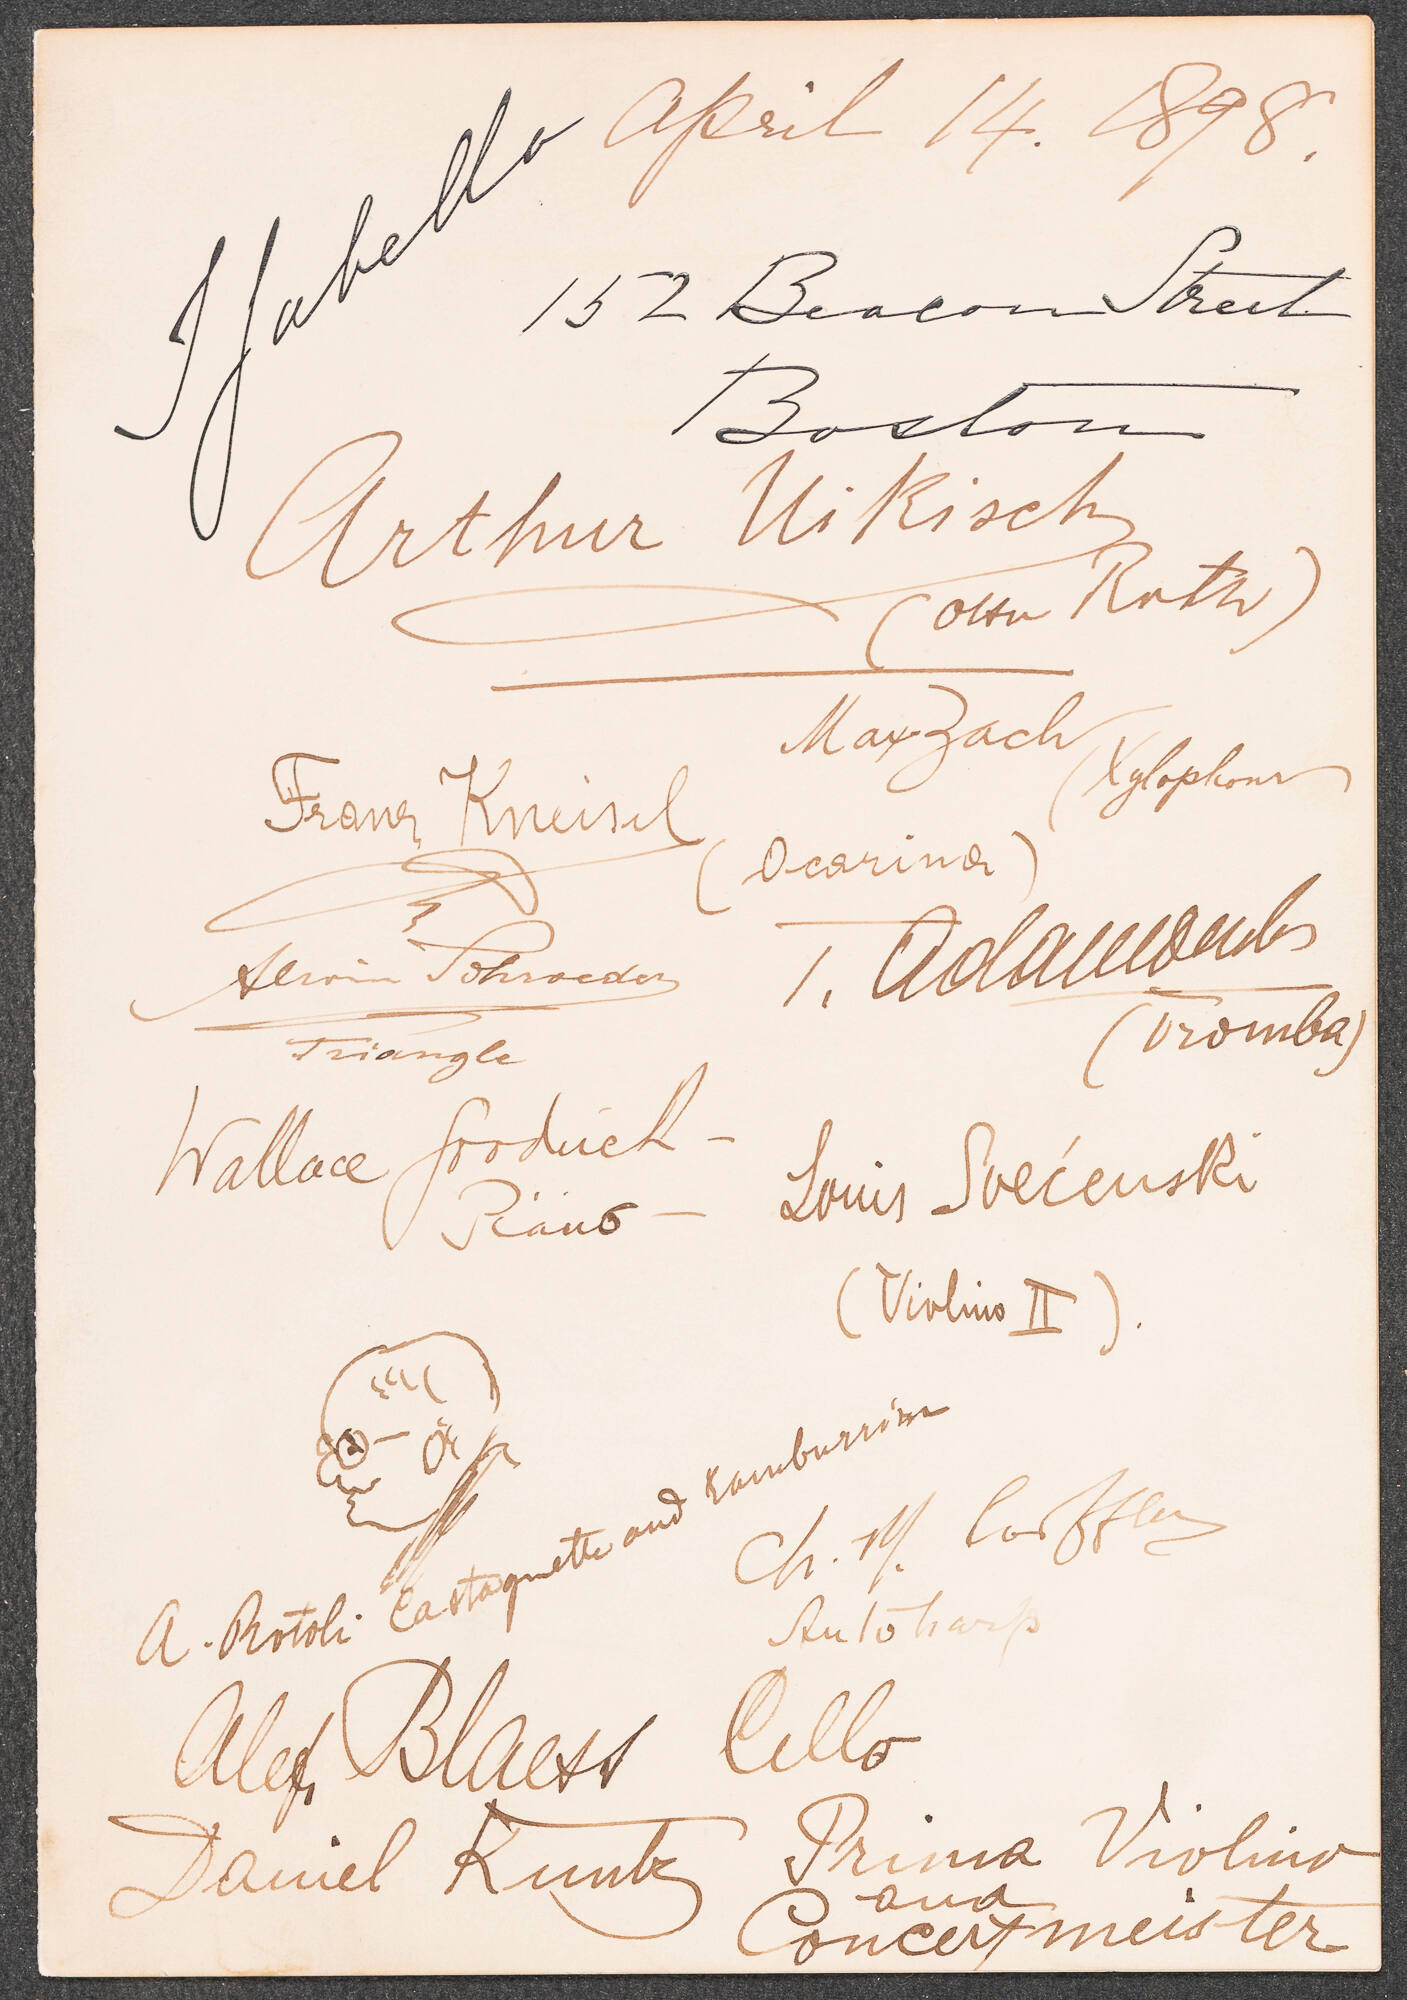 April 14. 1898.
Isabella
152 Beacon Street
Boston
Arthur Nikisch
(Otto Roth)
Max Zach
(Xylophone
Franz Kneisel
(Ocarina)
Alwin Schroeder
Triangle
T. Adamowski
(Tromba)
Wallace Goodrich –
Piano –
Louis Svećenski
(Violino II).
A. Rotoli Castagnette and tamburrine
Ch. M. Loeffler
Autoharp
Alex. Blaess Cello
Daniel Kuntz Prima Violino
and
Concertmeister